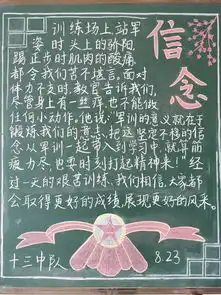 信念
训练场上,站军
姿时头上的骄阳,
踢正步时肌肉的酸痛
都令我们苦不堪言。面对
体力不支时,教官告诉我们,
尽管身上有一丝痒,也不能做
任何小动作。他说:“军训的意义就在于
锻炼我们的意志,把这坚定不移的信
念从军训一起带入到学习中,就算筋
疲力尽,也要时刻打起精神来!”经
过一天的艰苦训练,我们相信,大家都
会取得更好的成绩,展现更好的风采。
十三中队
8.23